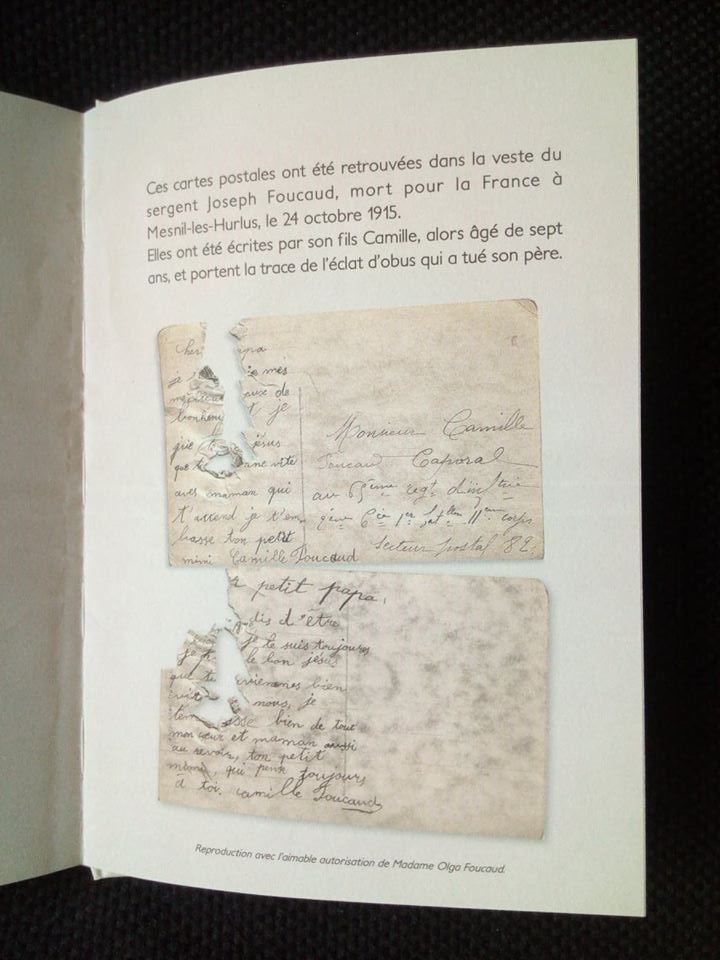 Ces cartes postales ont été retrouvées dans la veste du
sergent Joseph Foucaud, mort pour la France à
Mesnil-les-Hurlus, le 24 octobre 1915.
Elles ont été écrites par son fils Camille, alors âgé de sept
ans, et portent la trace de l'éclat d'obus qui a tué son père.
cher
je mes
de
bonheur t je
prie jésus
que t vite
avec maman qui
t'attend je t'em
brasse ton petit
mimi Camille Foucaud
Monsieur Camille
Foucaud Caporal
au 65ème regt d'infterie
9ème Cie 1er batllon 11ème corps
Secteur postal 82.
petit papa,
dis d'être
je le suis toujours
je p le bon jésus
que te viennes bien
nous, je
t'em sse bien de tout
mon cœur et maman aussi
au revoir, ton petit
mimi, qui pense toujours
à toi. Camille Foucaud
Reproduction avec l'aimable autorisation de Madame Olga Foucaud.